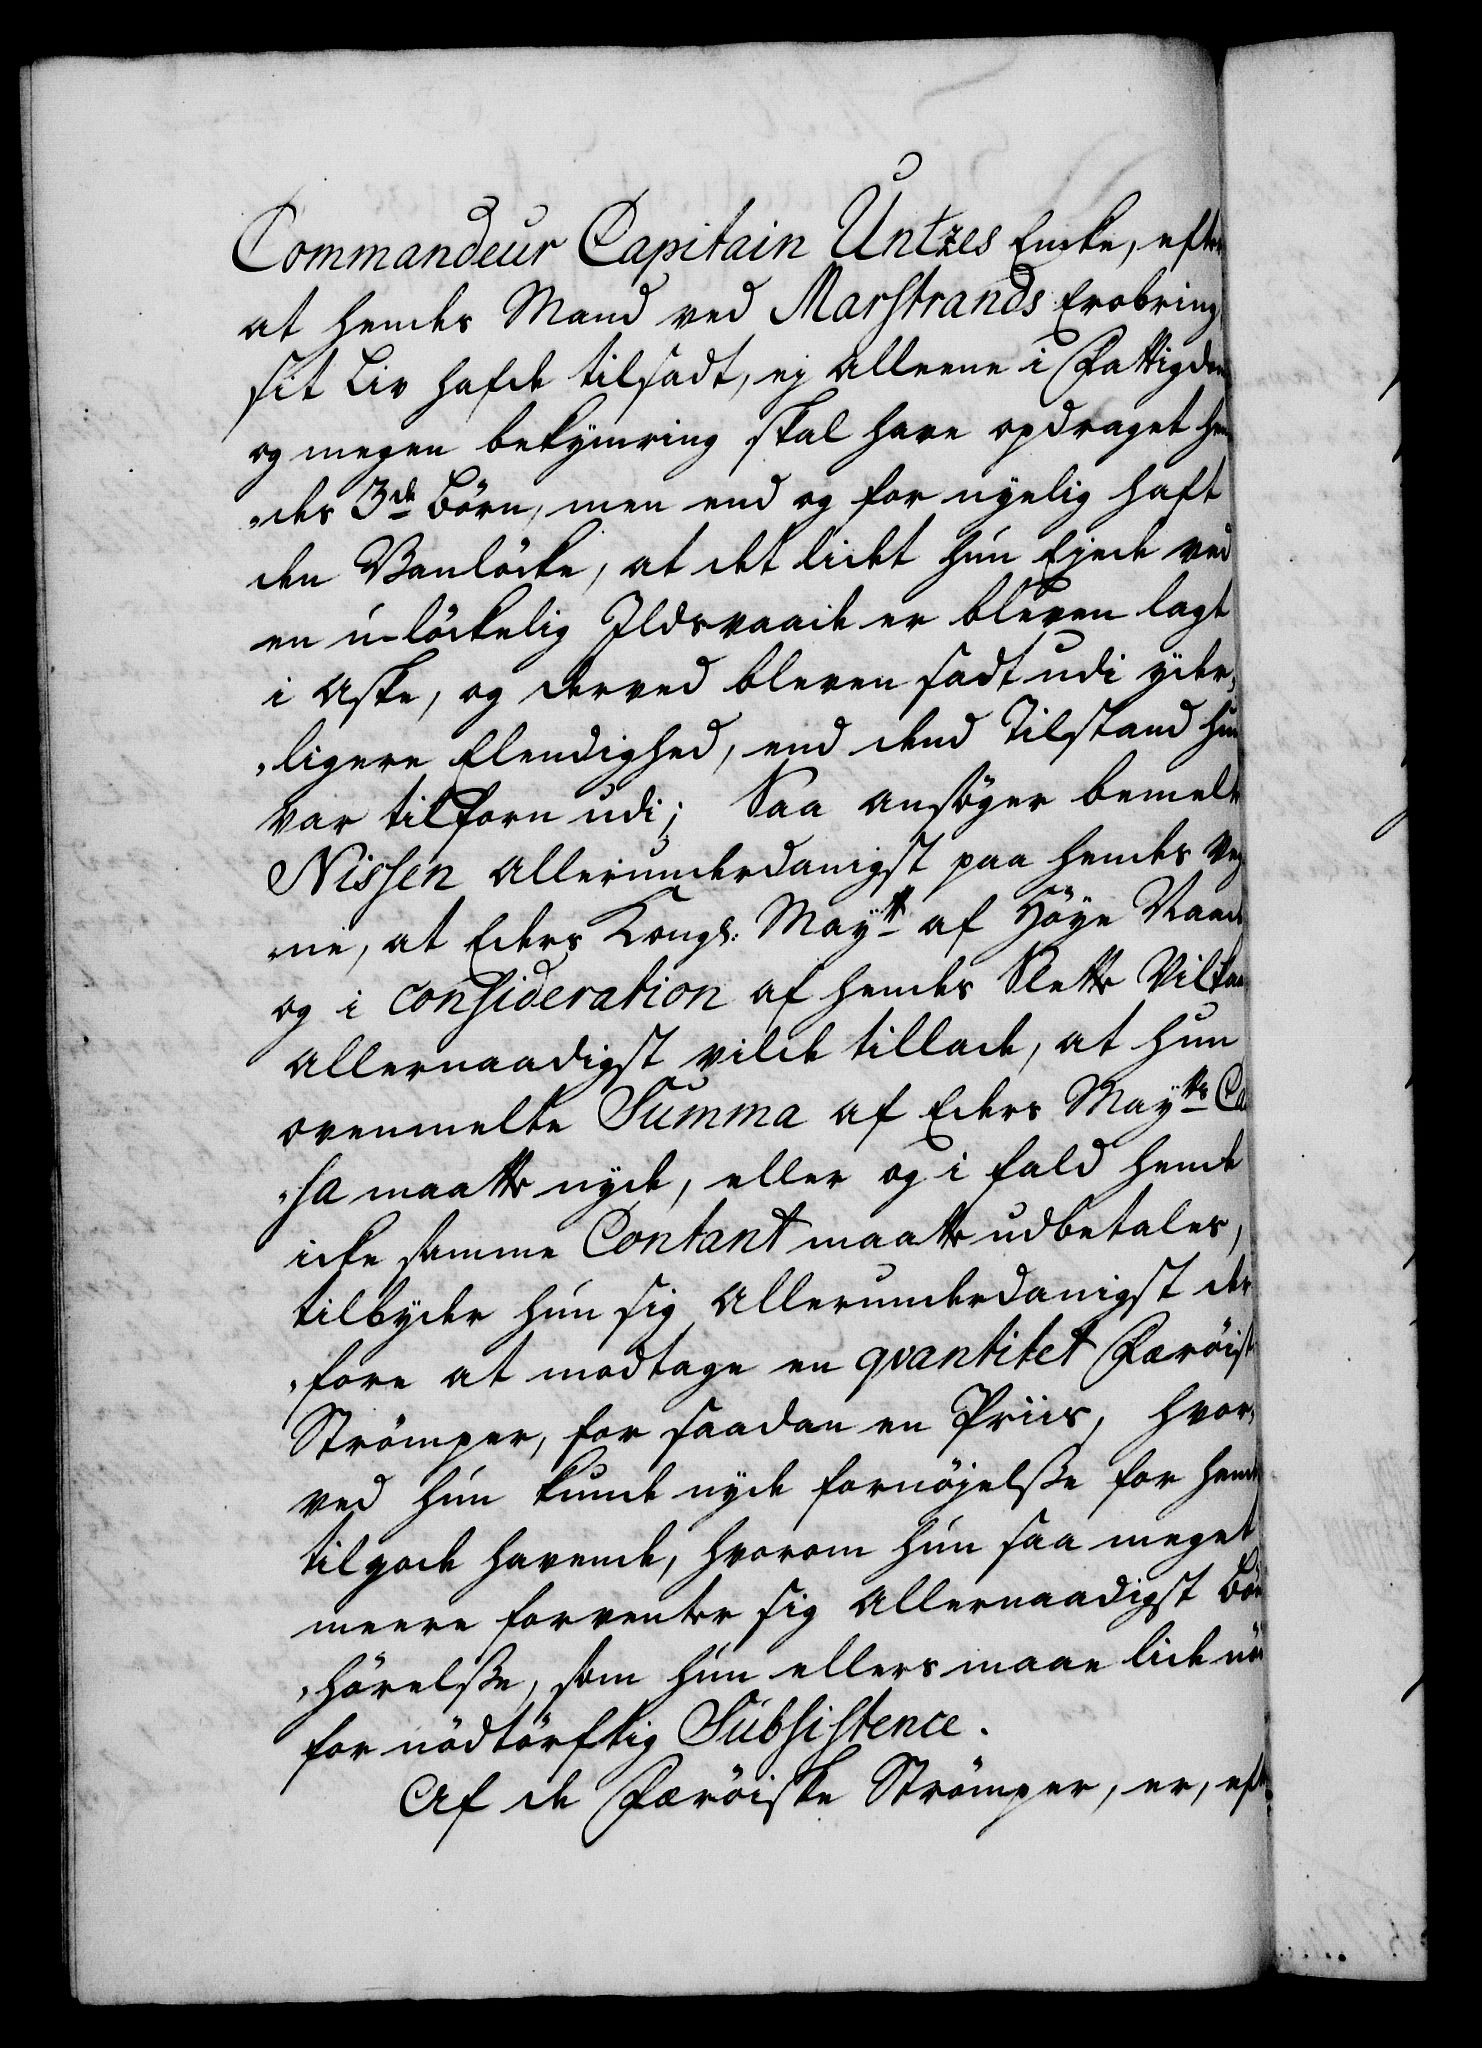 Commandeur Capitain Untzes Encke, efter
at hendes Mand ved Marstrands Erobring
sit Liv hafde tilsadt, ej alleene i Fattigdom
og megen bekÿmring skal have opdraget hen
„des 3de Börn, men end og for nÿelig haft
den Vanlöcke, at det lidet hun Ejede ved
en u-löckelig Ildsvaade er bleven lagt
i Aske, og derved bleven sadt udi ÿder„
„ligere Elendighed, end dend Tilstand hun
var tilforn udi; Saa ansöger bemelte
Nissen allerunderdanigst paa hendes Veg
„ne, at Eders Kongl: Maÿtt af Höÿe Naade
og i Consideration af hendes Slette Vilkaar
allernaadigst vilde tillade, at hun
ovenmelte Summa af Eders Maÿtts Ca
„ſsa maatte nÿde, eller og i fald hende
icke samme Contant maatte udbetales,
tilbÿder hun sig allerunderdanigst der
„fore at modtage en qvantitet Færöiske
Strömper, for saadan en Priis, hvor„
ved hun kunde nÿde fornöjelsse for hendes
tilgode havende, hvorom hun saa meget
meere forventer sig allernaadigst Bön
„hörelsse, som hun ellers maae lide nöd
for nödtörftig Subsistence.
Af de Færöiske Strömper, er, efter